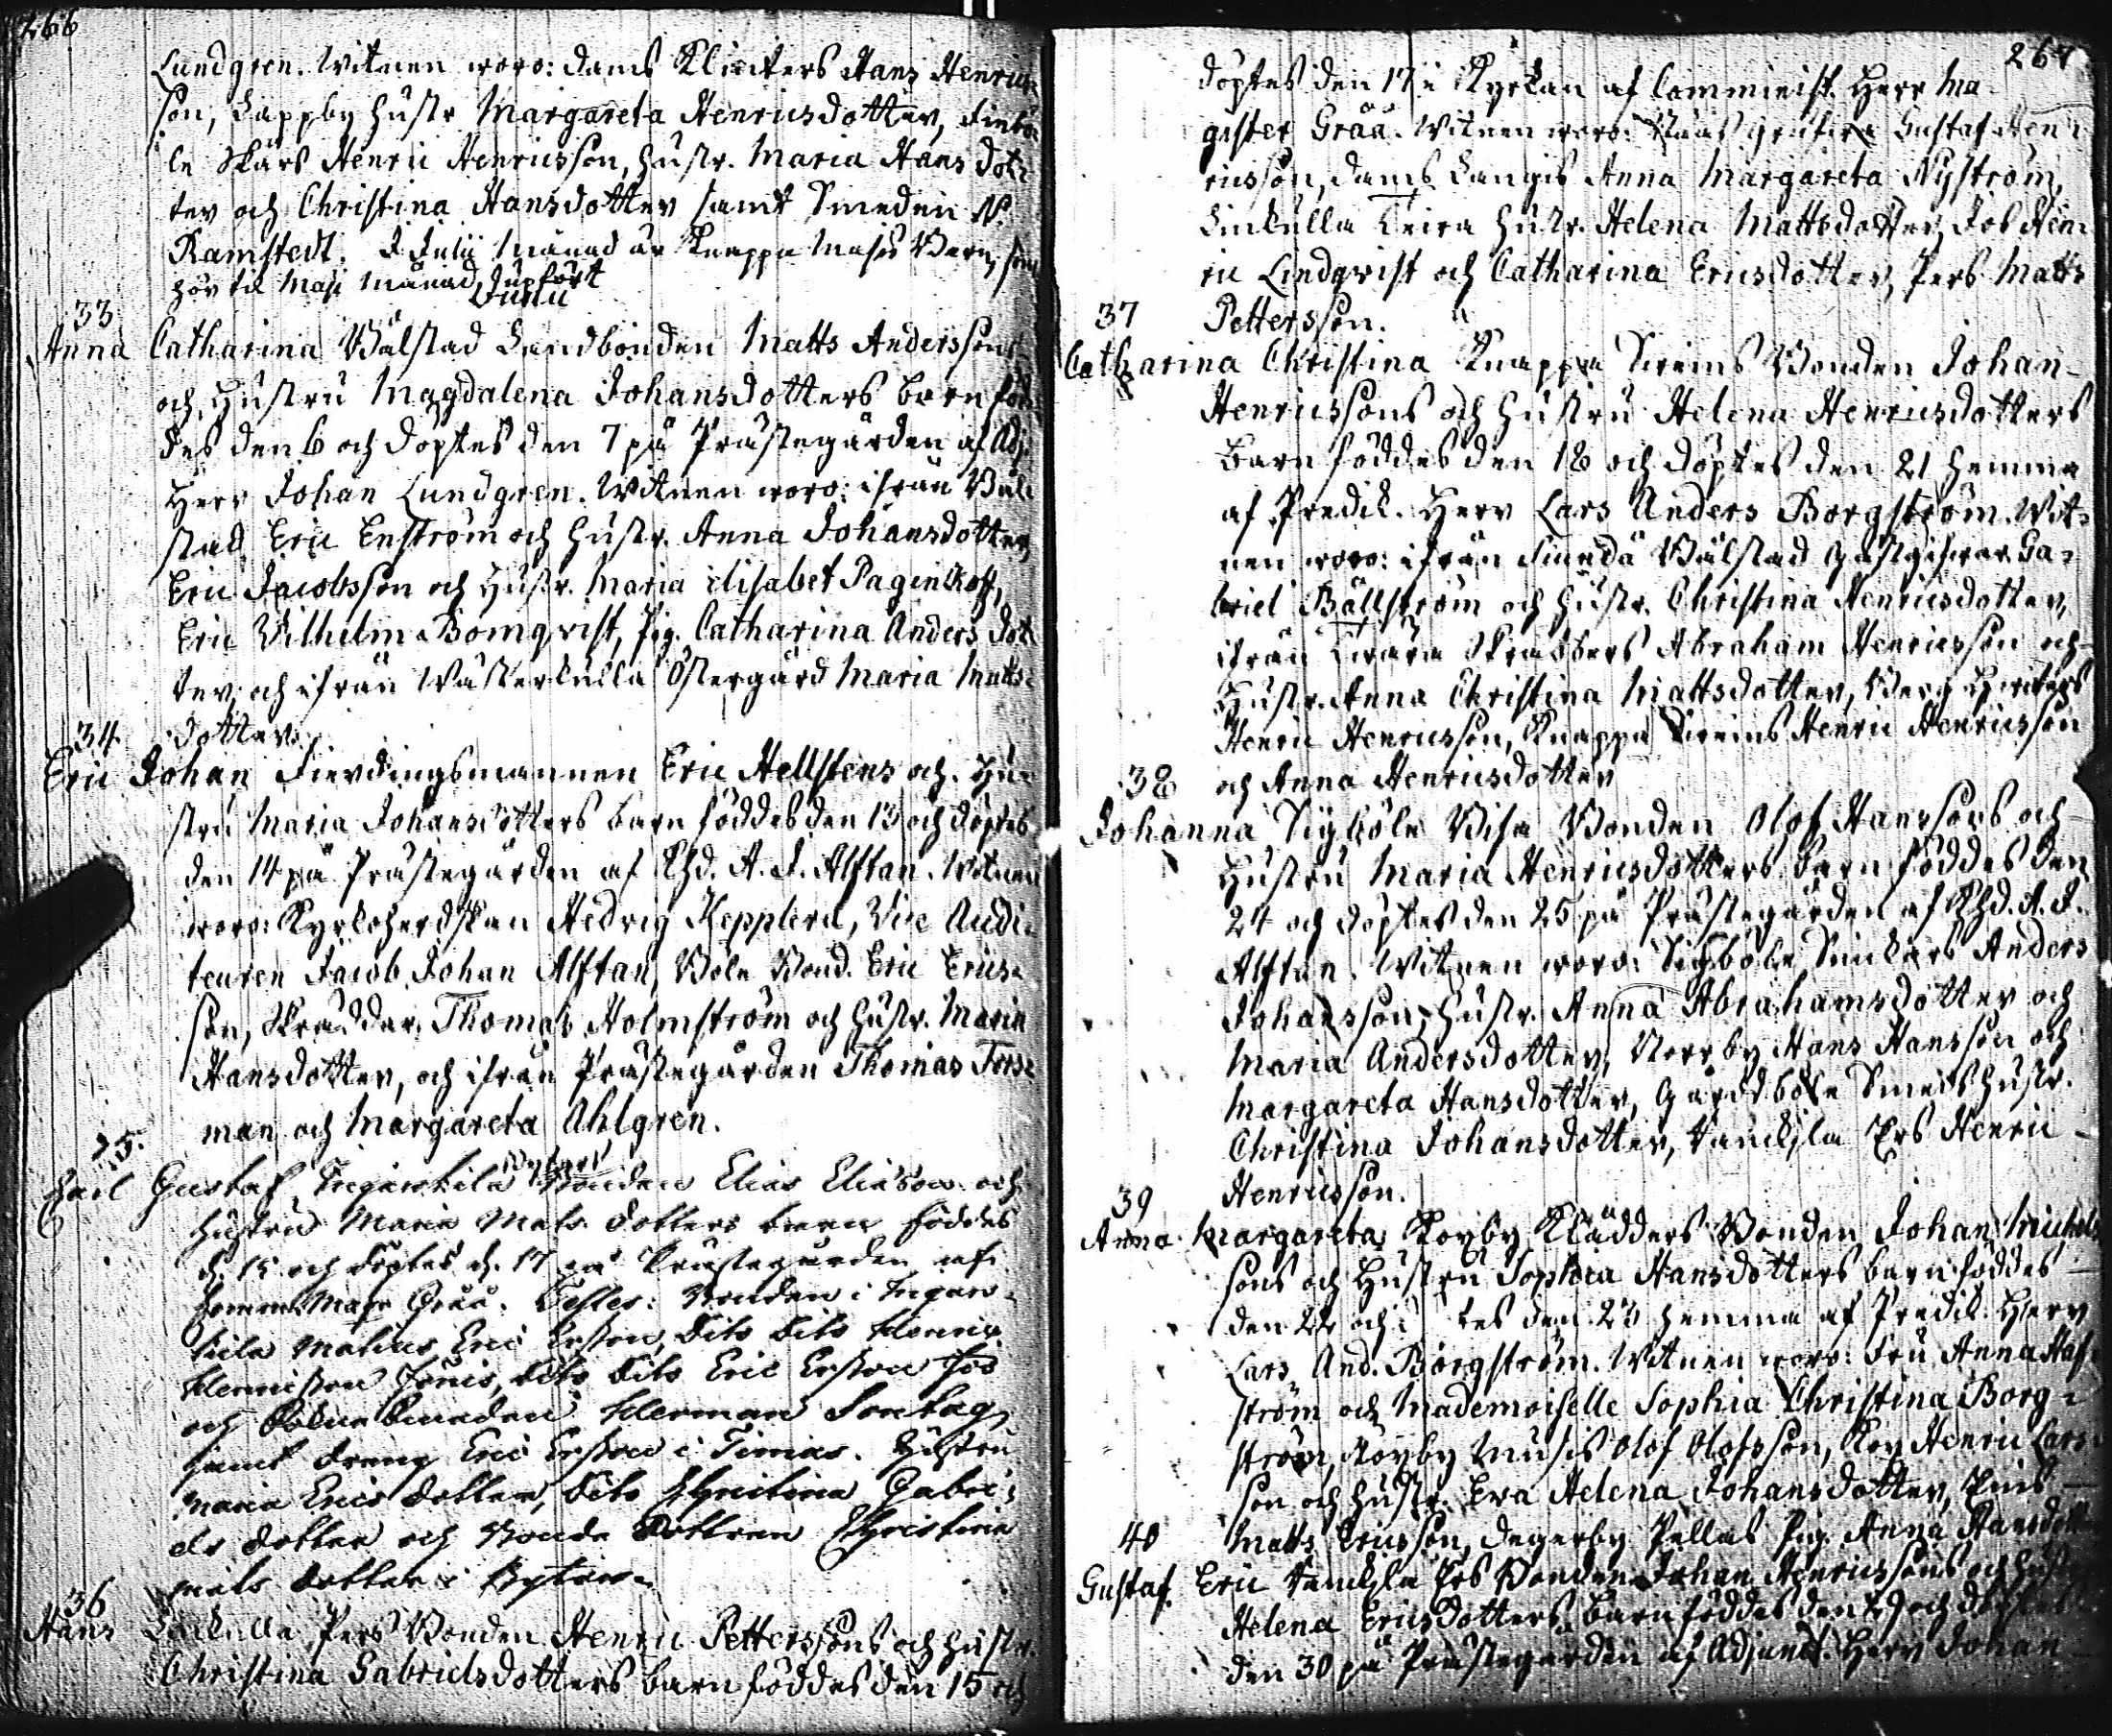 266
Lundgren. Witnen woro: Dams Klinkers Hans Henrics
son, Lappby hustr. Margareta Henricsdotter, Finbö
le Skårs Henric Henricsson, hustr. Maria Hans dot
ter och Christina Hansdotter samt Smeden N.
Ramstedt. I Julii månad är Knappa Barn, som
hör til Maji månad, Infört
Junii
33
Anna Catharina Bålstad Landbonden Matts Anderssons
och Hustru Magdalena Johansdotters barn föd
des den 6 och döptes den 7 på Prästegården af Adj.
Herr Johan Lundgren. Witnen woro: ifrån Bål
stad Eric Enström och hustr. Anna Johansdotter,
Eric Jacobsson och Hustr. Maria Elisabet Paginkoff,
Eric Wilhelm Blomqvist, Pig. Catharina Anders dot
ter, och ifrån Wästerkulla Östergård Maria Matts
dotter.
34
Eric Johan Fierdingsmannen Eric Hellstens och Hu
stru Maria Johansdotters barn föddes den 13 och döptes
den 14 på Prästegården af Khd. A. J. Alftan. Witnen
woro: Kyrkoherdskan Hedvig Kepplera, Vice Audi
teuren Jacob Johan Alftan, Böle Bond. Eric Erics
son, Skräddar. Thomas Holmström och hustr. Maria
Hansdotter, och ifrån Prästegården Thomas Fors
man och Margareta Ahlgren.
35.
Carl Gustaf, Ingarskila Bytars Bonden Elias Eliasson och
hustru Maria Mats dotters barn föddes
d. 15 och döptes d. 17 på Prästegården af
Comm. Mag. Gråå. Testes: Bonden i Ingar
skila Eric Ersson, dito dito Henric
Henricsson Jönis, dito dito Eric Ersson
och Herman Sontag,
samt dreng Eric Ersson i Timas. Hustru
Maria Erics dotter, dito Christina Gabri
els dotter och Bonde dottren Christina
Mats dotter i Bytars.
36
Hans Linkulla Pers Bonden Henric Petterssons och hustr.
Christina Gabrielsdotters barn föddes den 15 och
267
döptes den 17 i Kyrkan af Comminist. Herr Ma
gister Gråå. Witnen woro: Gustaf Hen
ricsson, Dams Langis Anna Margareta Nyström,
Linkulla hustr. Helena Mattsdotter, Hen
ric Lindqvist och Catharina Ericsdotter, Pers Matts
Pettersson.
37
Catharina Christina Knappa Sveins Bonden Johan
Henricssons och hustru Helena Henricsdotters
barn föddes den 18 och döptes den 21 hemma
af Predik. Herr Lars Anders Borgström. Wit
nen woro: ifrån Sunnå Bålstad Gästgifvar. Ga
briel Bällström och hustr. Christina Henricsdotter,
ifrån Skrabbers Abraham Henricsson och
Hustr. Anna Christina Mattsdotter, Berg
Henric Henricsson, Knappa Sveins Henric Henricsson
och Anna Henricsdotter
38
Johanna Sigböle Visa Bonden Olof Hanssons och
Hustru Maria Henricsdotters barn föddes den
24 och döptes den 25 på Prästegården af Khd. A. J.
Alftan. Witnen woro: Sigböle Anders
Johansson, hustr. Anna Abrahamsdotter och
Maria Andersdotter, Norrby Hans Hansson och
Margareta Hansdotter, Gårdsböle Smeds hustr.
Christina Johansdotter, Ers Henric
Henricsson.
39
Anna Margareta, Kåxby Klädders Bonden Johan Michels
sons och Hustru Sophia Hansdotters barn föddes
den 22 och tes den 23 hemma af Predik. Herr
Lars And. Borgström. Witnen woro: Fru Anna Haf
ström och Mademoiselle Sophia Christina Borg
ström, Olof Olofsson, Henric Lars
son och hustr. Eva Helena Johansdotter,
Matts Ericsson, Degerby Pellas Pig. Anna Hansdotter
40
Gustaf. Eric Ers Bonden Johan Henricssons och hustr.
Helena Ericsdotters barn föddes den 29 och döptes
den 30 på Prästegården af Adjunct. Herr Johan